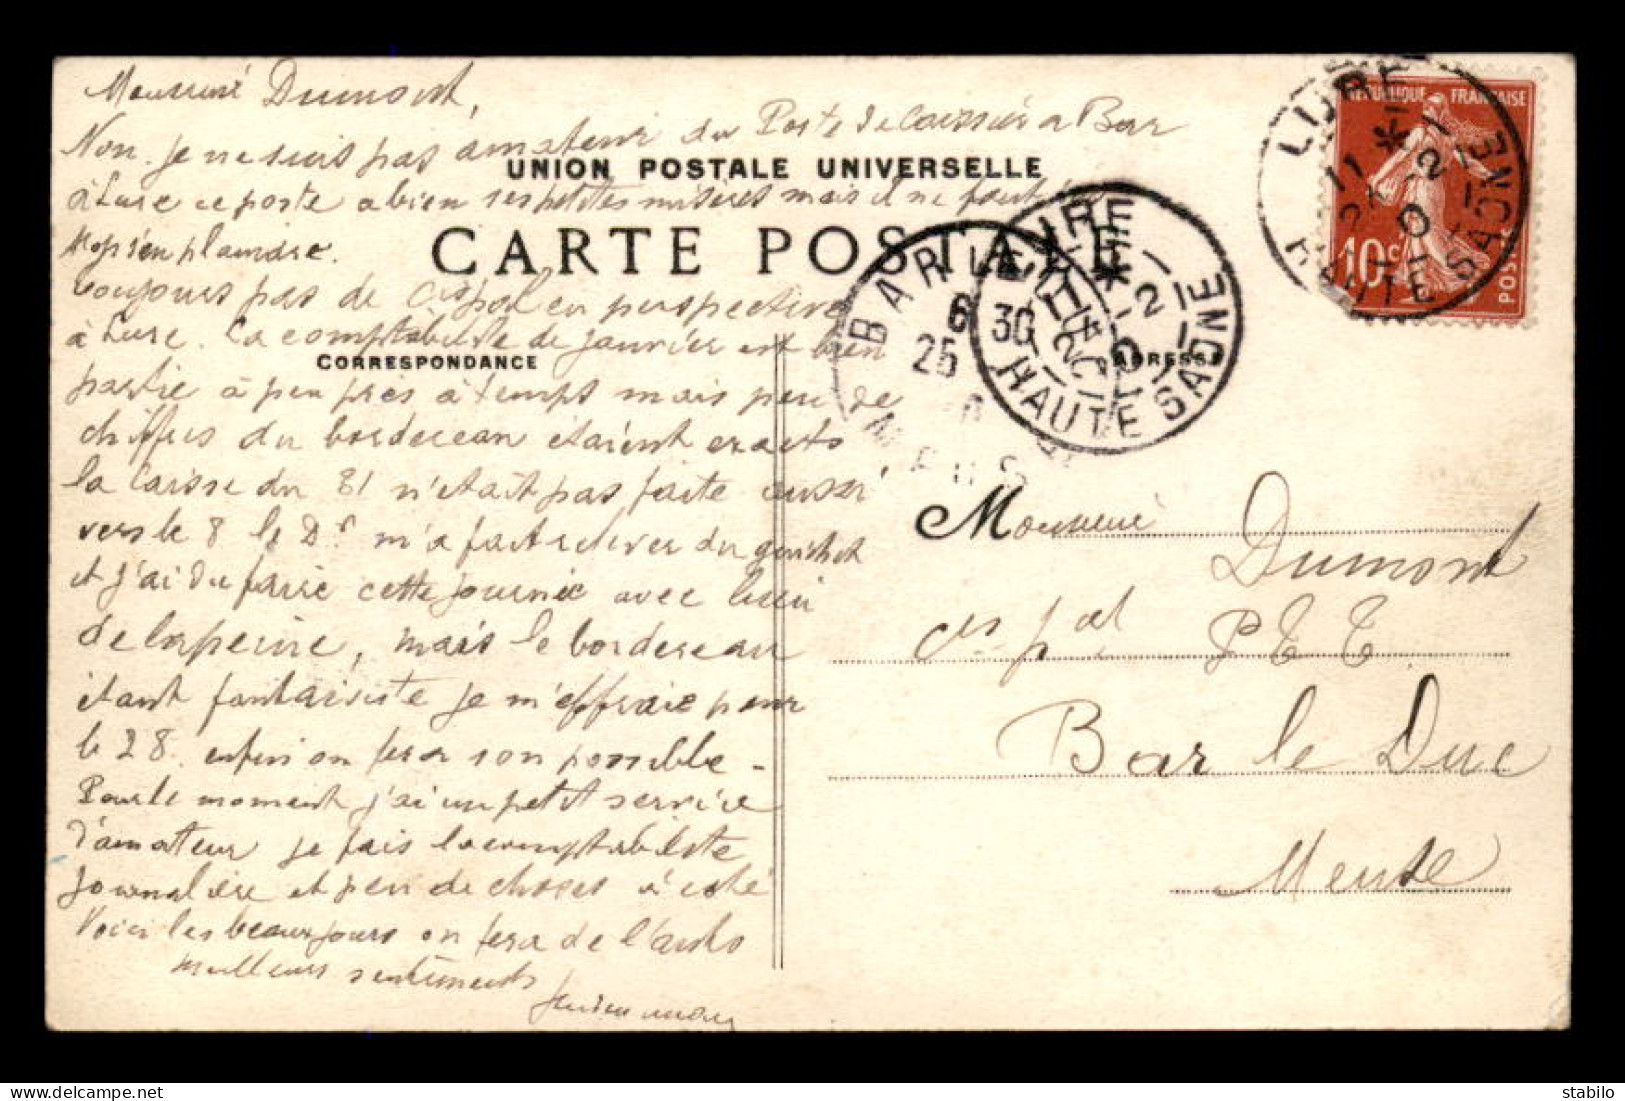 Monsieur Dumont,
Non je ne suis pas amateur du Poste de Caissier à Bar
UNION POSTALE UNIVERSELLE
à Lure ce poste a bien ses petites misères mais il ne faut
pas s'en plaindre.
CARTE POSTALE
Toujours pas de Cis pal en perspective
à Lure. La comptabilité de janvier est bien
CORRESPONDANCE
ADRESSE
partie à peu près à temps mais peu de
chiffres du bordereau étaient exacts
la Caisse du 31 n'était pas faite aussi
vers le 8 le Dr m'a fait relever du guichet
et j'ai du faire cette journée avec
de la peine, mais le bordereau
étant fantaisiste je m'effraie pour
le 28. enfin on fera son possible -
Pour le moment j'ai un petit service
d'amateur je fais la comptabilité
journalière et peu de choses à côté
Voici les beaux jours on fera de l'auto
meilleurs sentiments
Monsieur Dumont
Cis pal PTT
Bar le Duc
Meuse
REPUBLIQUE FRANÇAISE
10c
POSTES
LURE
11 *
HAUTE SAONE
BAR LE DUC
6 30
25
MEUSE
LURE
HAUTE SAONE
stabilo